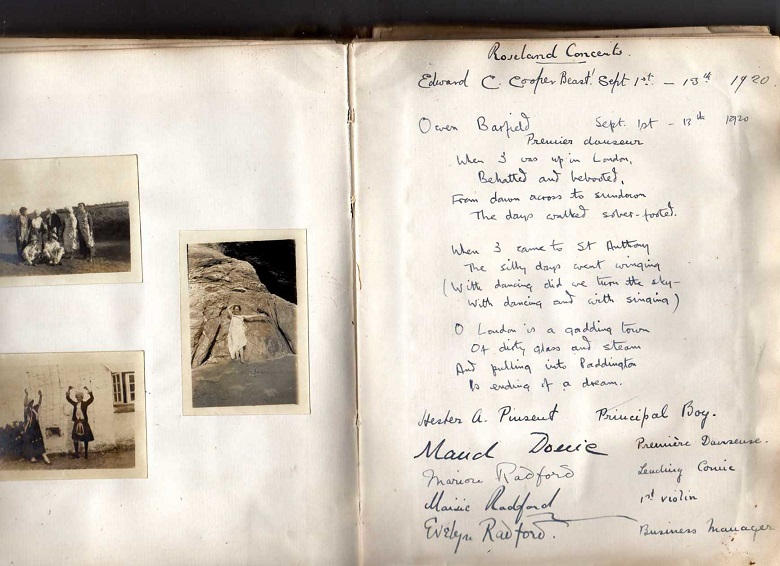 Roseland Concerts.
Edward C. Cooper Beast! Sept 1st. - 13th 1920.
Owen Barfield Sept. 1st - 13th 1920
Premier danseur
When I was up in London,
Behatted and bebooted,
From dawn across to sundown
The days walked sober-footed.
When I came to St Anthony
The silly days went winging
(With dancing did we turn the sky -
With dancing and with singing)
O London is a gadding town
Of dirty glass and steam
And pulling into Paddington
Is ending of a dream.
Hester A. Pinsent Principal Boy.
Maud Première Danseuse.
Marion Radford Leading Comic
Maisie Radford 1st violin
Evelyn Radford. Business Manager